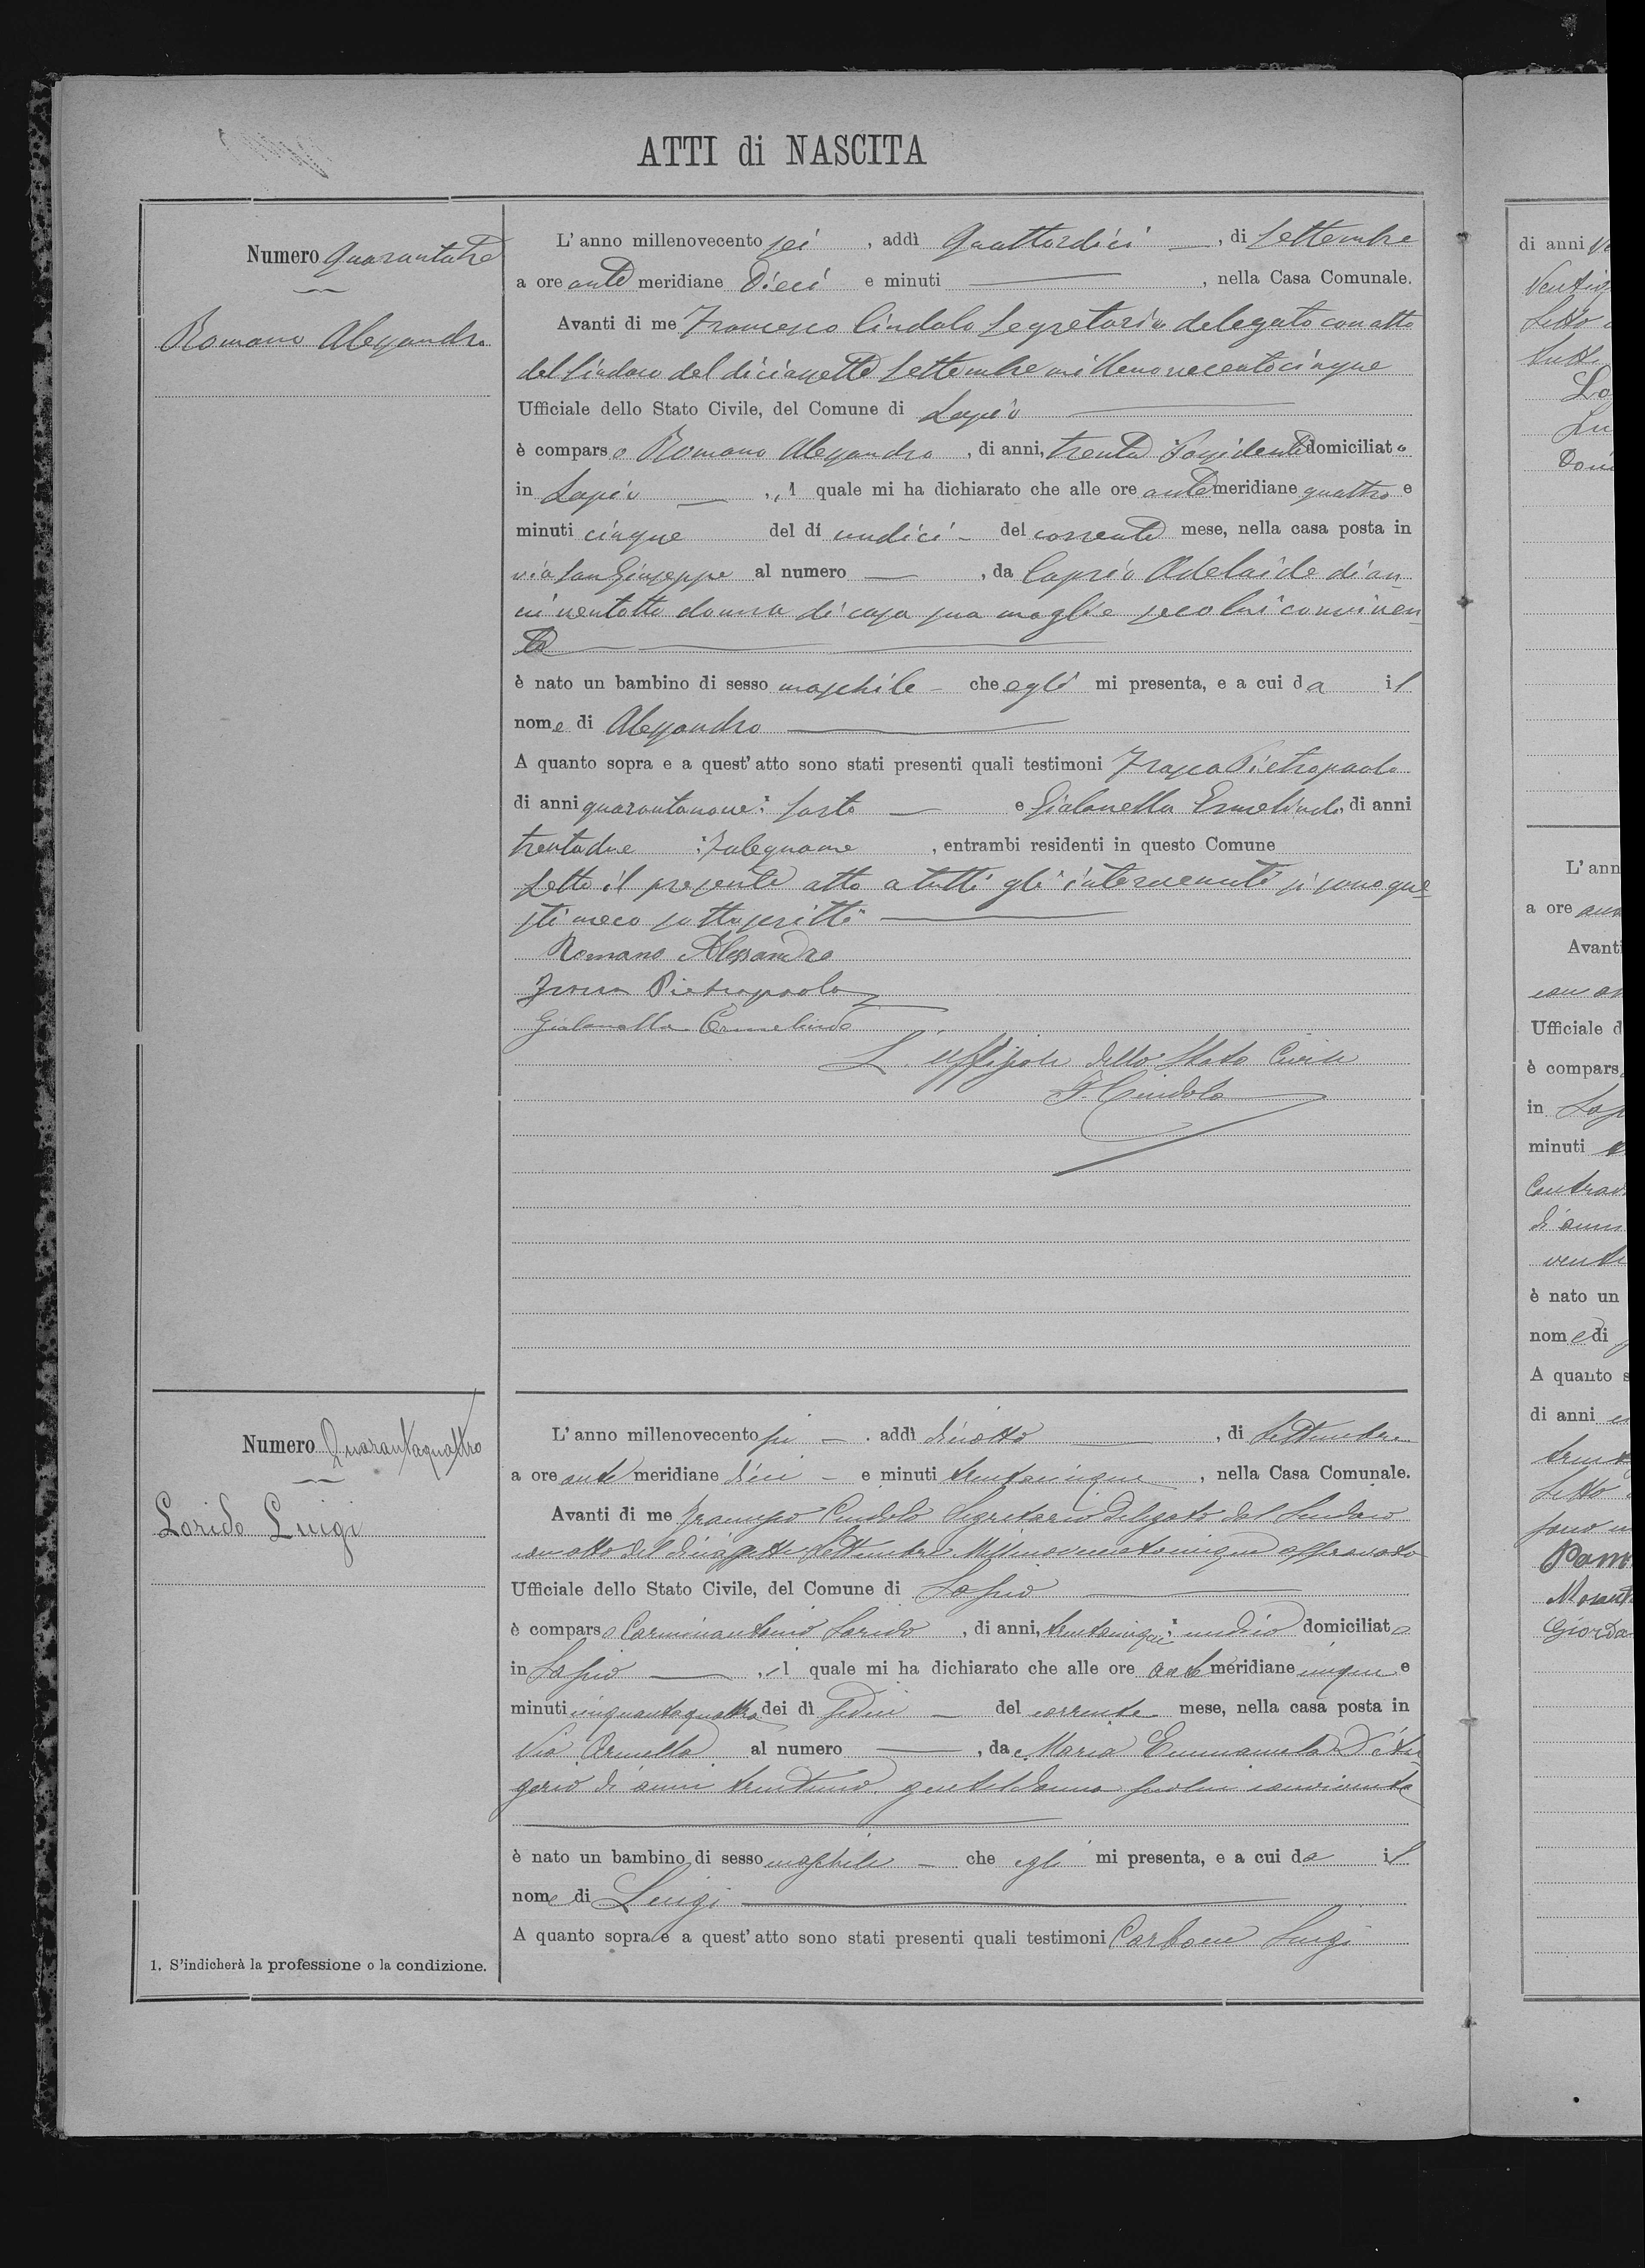 ATTI di NASCITA
Numero Quarantatre
Romano Alessandro
L'anno millenovecento sei , addì Quattordici — , di Settembre
a ore ante meridiane Dieci e minuti — , nella Casa Comunale.
Avanti di me Francesco Cindolo Segretario delegato con atto
del Sindaco del diciassette Settembre millenovecentocinque
Ufficiale dello Stato Civile, del Comune di Lapio —
è comparso Romano Alessandro , di anni, trenta Possidente domiciliato
in Lapio — , il quale mi ha dichiarato che alle ore ante meridiane quattro e
minuti cinque del dì undici — del corrente mese, nella casa posta in
via San Giuseppe al numero — , da Caprio Adelaide di an
ni ventotto donna di casa sua moglie seco lui conviven-
te —
è nato un bambino di sesso maschile — che egli mi presenta, e a cui da il
nome di Alessandro —
A quanto sopra e a quest'atto sono stati presenti quali testimoni Pietropaolo
di anni quarantanove: sarto — e Gialanella Ermelindo, di anni
trentadue : falegname , entrambi residenti in questo Comune
Letto il presente atto a tutti gl'intervenuti si sono que-
sti meco sottoscritti —
Romano Alessandro
Pietropaolo
Gialanella Ermelindo
L'uffiziale dello Stato Civile
F. Cindolo
Numero Quarantaquattro
Lorido Luigi
L'anno millenovecento sei — . addì diciotto — , di Settembre
a ore ante meridiane dieci — e minuti trentacinque , nella Casa Comunale.
Avanti di me Francesco Cindolo Segretario delegato dal Sindaco
con atto del diciassette Settembre Millenovecentocinque approvato
Ufficiale dello Stato Civile, del Comune di Lapio —
è comparso Carminantonio Lorido , di anni, trentacinque: domiciliato
in Lapio — , il quale mi ha dichiarato che alle ore ante meridiane cinque e
minuti cinquantaquattro dei dì sedici — del corrente mese, nella casa posta in
Via al numero — , da Maria Emmanuela
di anni trentuno, gentildonna seco lui convivente
—
è nato un bambino di sesso maschile — che egli mi presenta, e a cui da il
nome di Luigi —
A quanto sopra e a quest'atto sono stati presenti quali testimoni Carbone Luigi
1. S'indicherà la professione o la condizione.
di anni
L'ann
a ore
Avanti
Ufficiale d
è compars
in Lap
minuti
è nato un
nome di
A quanto s
di anni